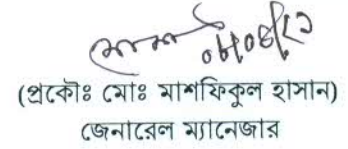 (প্রকৌঃ মোঃ মাশফিকুল হাসান)
জেনারেল ম্যানেজার